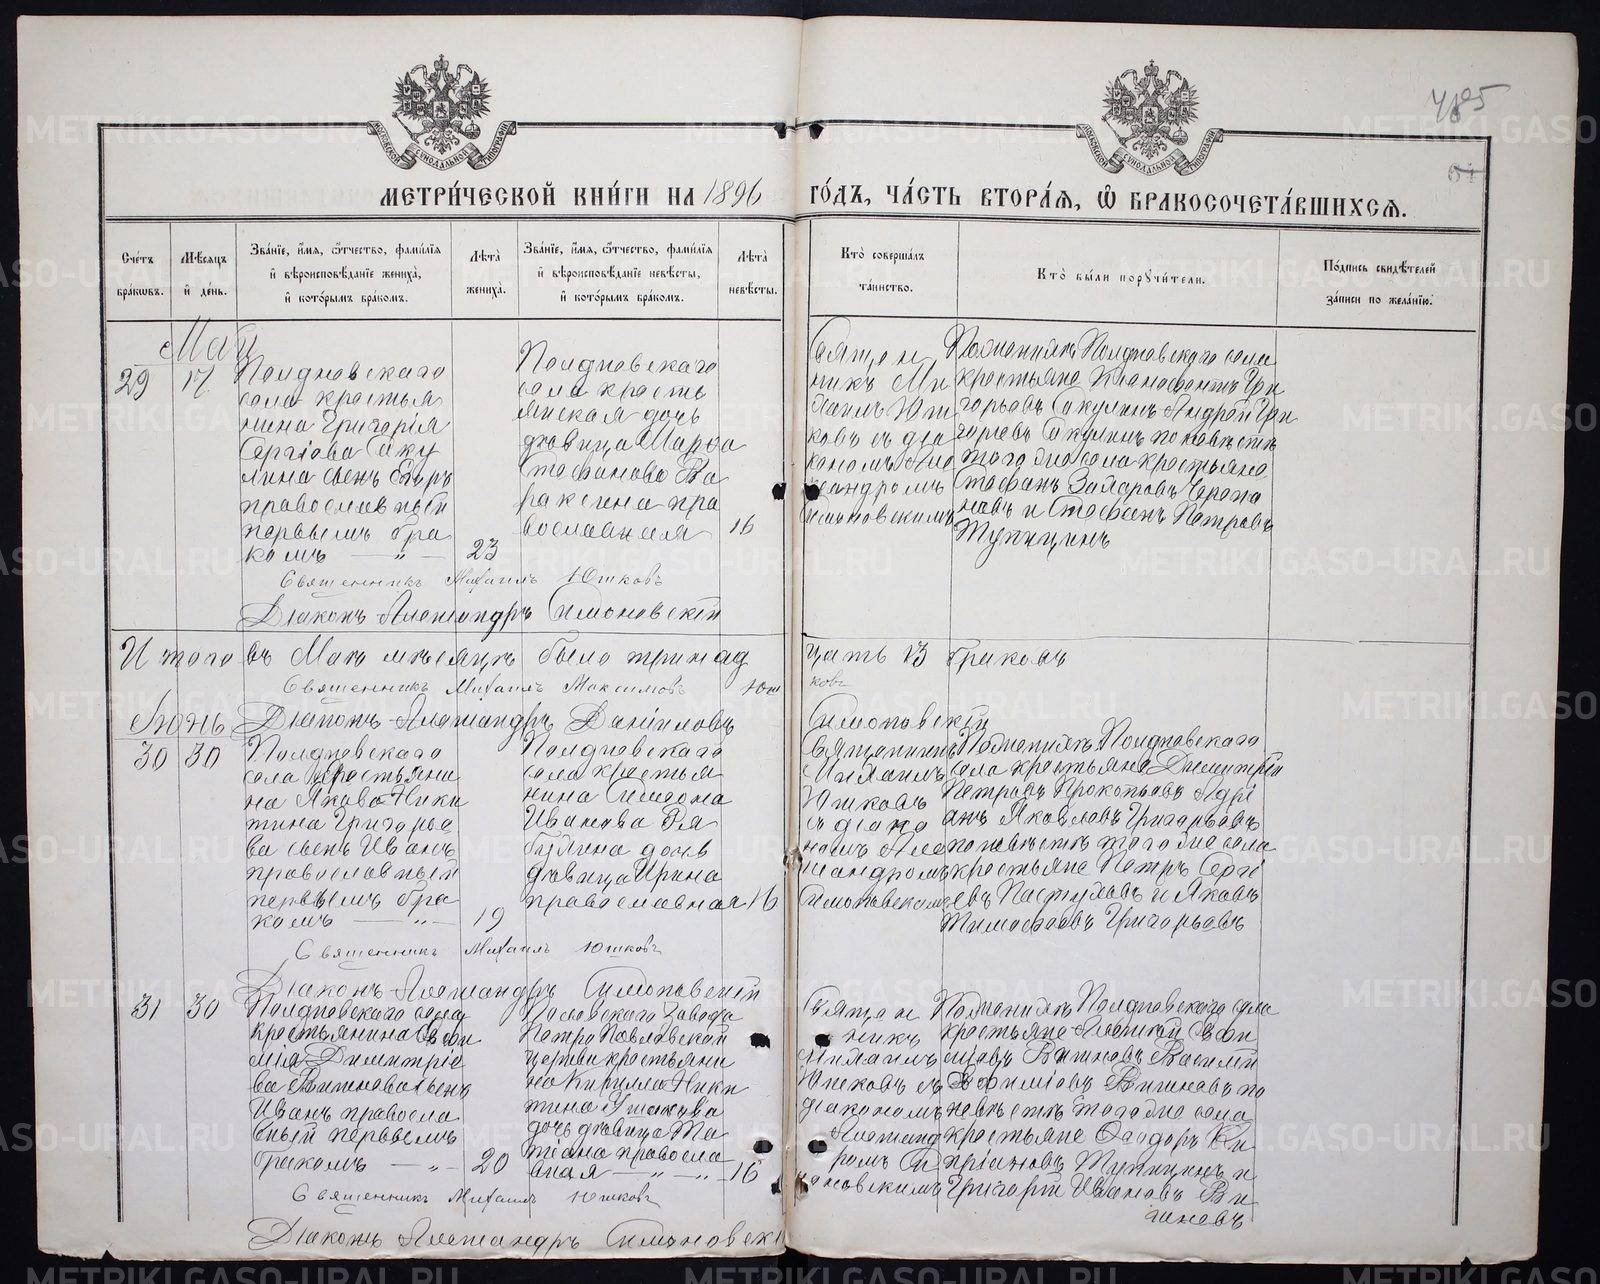 485
МЕТРИ́ЧЕСКОЙ КНИ́ГИ НА 1896 ГО́ДЪ, ЧА́СТЬ ВТОРА́Я, Ѽ БРАКОСОЧЕТА́ВШИХСЯ.
Сче́тъ бра́кѡвъ.
Мѣ́сяцъ и҆ день.
Зва́нїе, и҆́мя, ѻ҆́тчество, фами́лїя
и҆ вѣроисповѣ́данїе жениха̀,
и҆ кото́рымъ бра́комъ.
Лѣ́та
жениха̀.
Зва́нїе, и҆́мя, ѻ҆́тчество, фами́лїя
и҆ вѣроисповѣ́данїе невѣ́сты,
и҆ кото́рымъ бра́комъ.
Лѣ́та
невѣ́сты.
Кто̀ соверша́лъ
та́инство.
Кто̀ бы́ли порꙋчи́тели.
По́дпись свидѣ́телей
за́писи по жела́нїю.
Май
29
17
Полдновскаго
села крестья
нина Григорія
Сергіева Аку
лина сынъ Егоръ
православный
первымъ бра
комъ — „ —
23
Полдновскаго
села кресть
янская дочь
дѣвица Марфа
Стефанова Ва
ракина пра
вославная
16
Священ
никъ Ми
хаилъ Юш
ковъ съ діа
кономъ Але
ксандромъ
Симоновскимъ
По женихѣ Полдновскаго села
крестьяне Ксенофонтъ Гри
горьевъ Акулинъ Андрей Гри
горьевъ Акулинъ по невѣстѣ
того же села крестьяне
Стефанъ Захаровъ Черепа
новъ и Стефанъ Петровъ
Тупицынъ
Священникъ Михаилъ Юшковъ
Діаконъ Александръ Симоновскій
Итого въ Маѣ мѣсяцѣ было тринад
цать 13 браковъ
Священникъ Михаилъ Максимовъ Юш
ковъ
Іюнь
Діаконъ Александръ Даніиловъ
Симоновскій
30
30
Полдновскаго
села крестьяни
на Якова Ники
тина Григорье
ва сынъ Иванъ
православный
первымъ бра
комъ — „ —
19
Полдновскаго
села крестья
нина Симеона
Иванова Ря
бухина дочь
дѣвица Ирина
православная
16
Священникъ
Михаилъ
Юшковъ
съ діако
номъ Але
ксандромъ
Симоновскимъ
По женихѣ Полдновскаго
села крестьяне Димитрій
Петровъ Прокопьевъ Адрі
анъ Яковлевъ Григорьевъ
по невѣстѣ того же села
крестьяне Петръ Сергі
евъ Пастуховъ и Яковъ
Тимофеевъ Григорьевъ
Священникъ Михаилъ Юшковъ
Діаконъ Александръ Симоновскій
31
30
Полдновскаго села
крестьянина Евфи
мія Димитріе
ва Вишнева сынъ
Иванъ правосла
вный первымъ
бракомъ — „ —
20
Полевскаго Завода
Петро Павловской
церкви крестьяни
на Кирилла Ники
тина Ушакова
дочь дѣвица Та
тіана правосла
вная — „ — „ —
16
Священ
никъ
Михаилъ
Юшковъ съ
діакономъ
Александ
ромъ Си
моновскимъ
По женихѣ Полдновскаго села
крестьяне Алексій Евфи
міевъ Вишневъ Василій
Евфиміевъ Вишневъ по
невѣстѣ того же села
крестьяне Ѳеодоръ Ки
пріановъ Тупицынъ и
Григорій Ивановъ Ви
шневъ
Священникъ Михаилъ Юшковъ
Діаконъ Александръ Симоновскі
METRIKI.GASO-URAL.RU